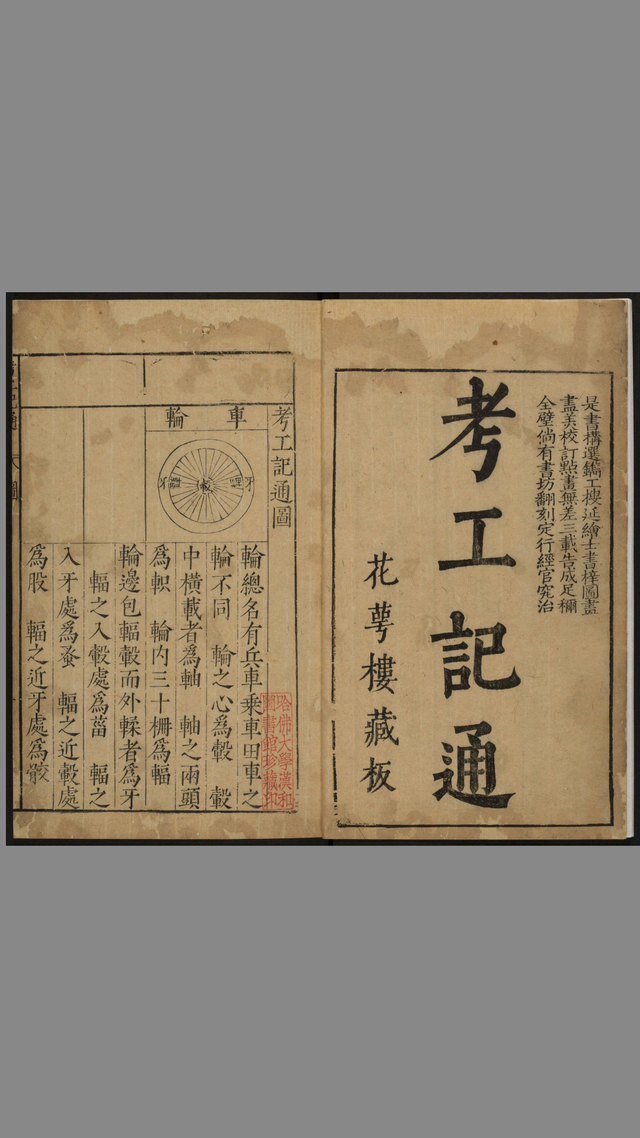 是書搆選鐫工搜延繪士書梓圖畫
盡美校訂㸃畫無差三載告成足稱
全璧倘有書坊翻刻定行經官究治
考工記通
花萼樓藏板
考工記通圖
車輪
牙
輻
轂
輻
牙
輪總名有兵車乗車田車之
輪不同　輪之心爲轂　轂
中横載者爲軸　軸之兩頭
爲軹　輪内三十柵爲輻
輪邊包輻轂而外輮者爲牙
輻之入轂處爲菑　輻之
入牙處爲蚤　輻之近轂處
爲股　輻之近牙處爲骹
哈佛大學漢和
圖書館珍藏印